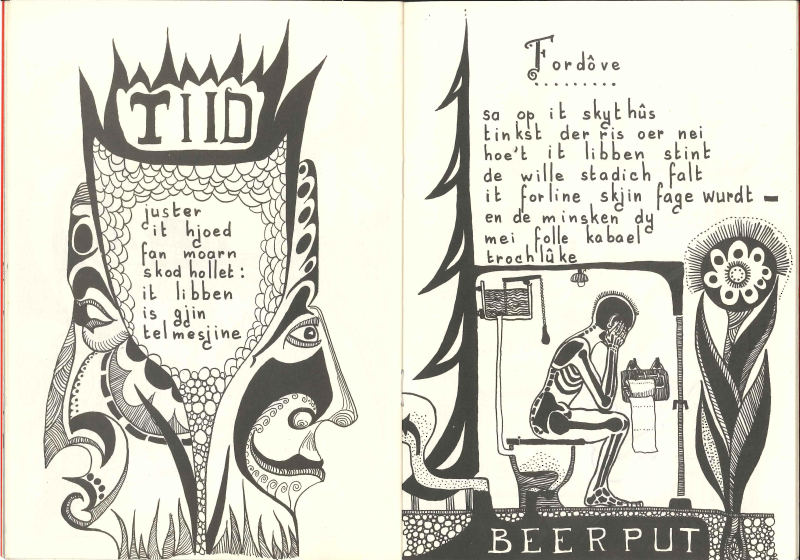 TIID
juster
it hjoed
fan moarn
skodhollet:
it libben
is gjin
telmesjine
Fordôve
sa op it skythûs
tinkst der ris oer nei
hoe't it libben stint
de wille stadich falt
it forline skjin fage wurdt –
en de minsken dy
mei folle kabael
trochlûke
BEERPUT